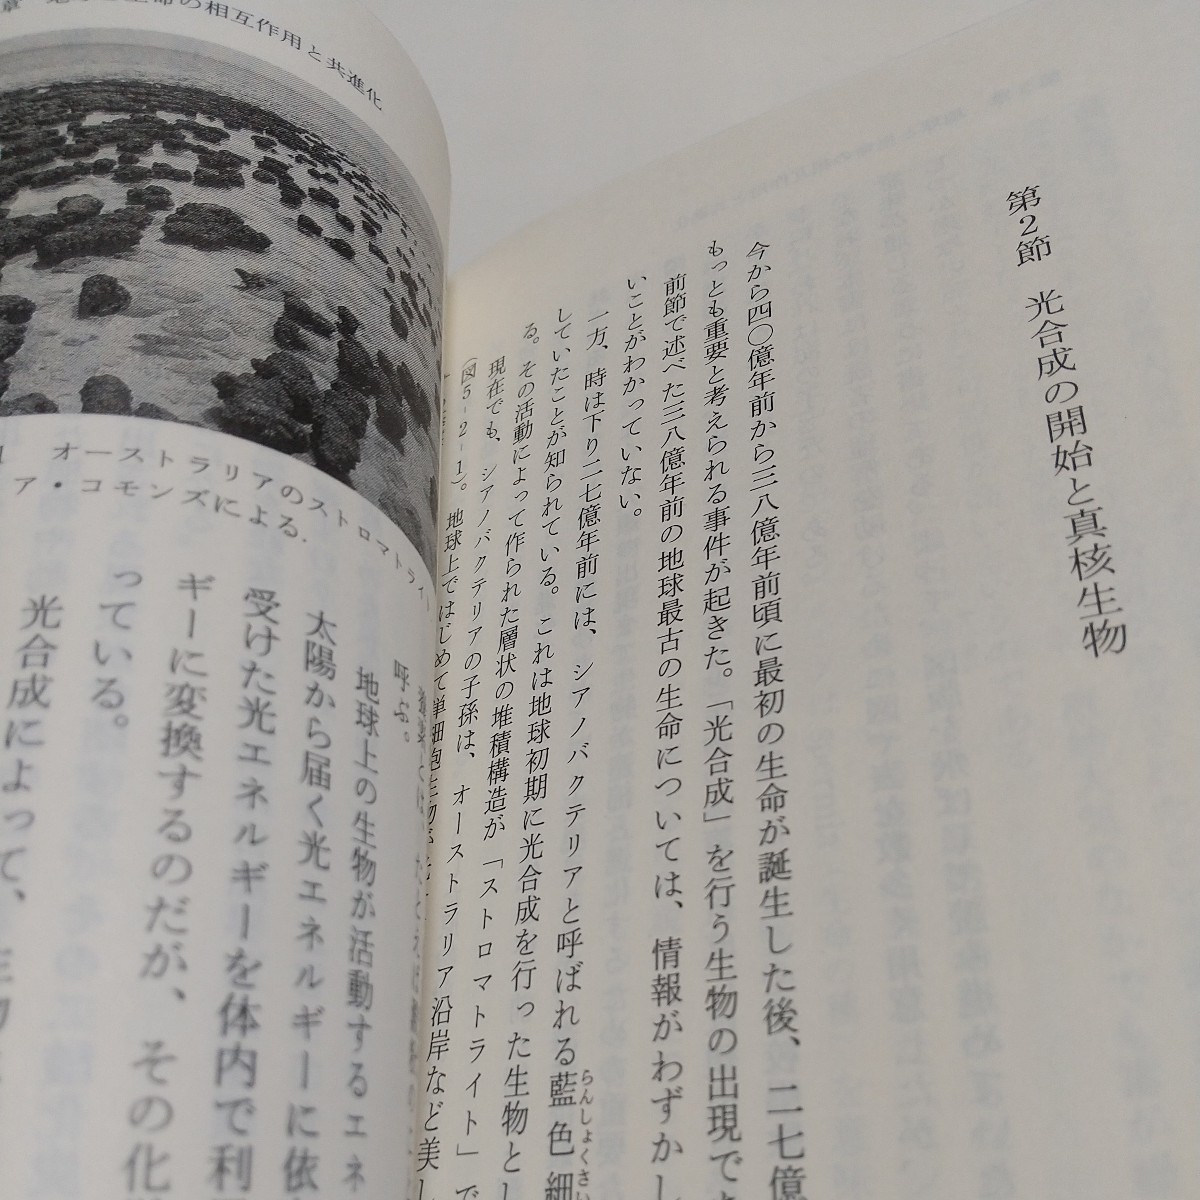 第2節　光合成の開始と真核生物
今から四〇億年前から三八億年前頃に最初の生命が誕生した後、二七億
もっとも重要と考えられる事件が起きた。「光合成」を行う生物の出現であ
前節で述べた三八億年前の地球最古の生命については、情報がわずかし
いことがわかっていない。
一方、時は下り二七億年前には、シアノバクテリアと呼ばれる藍色細
らんしょくさい
していたことが知られている。これは地球初期に光合成を行った生物とし
る。その活動によって作られた層状の堆積構造が「ストロマトライト」で
現在でも、シアノバクテリアの子孫は、オーストラリア沿岸など美し
（図5-2-1）。地球上ではじめて単細胞生物が
の相互作用と共進化
1　オーストラリアのストロマトライト
ア・コモンズによる.
呼ぶ。
地球上の生物が活動するエネ
太陽から届く光エネルギーに依
受けた光エネルギーを体内で利
ギーに変換するのだが、その化
っている。
光合成によって、生物